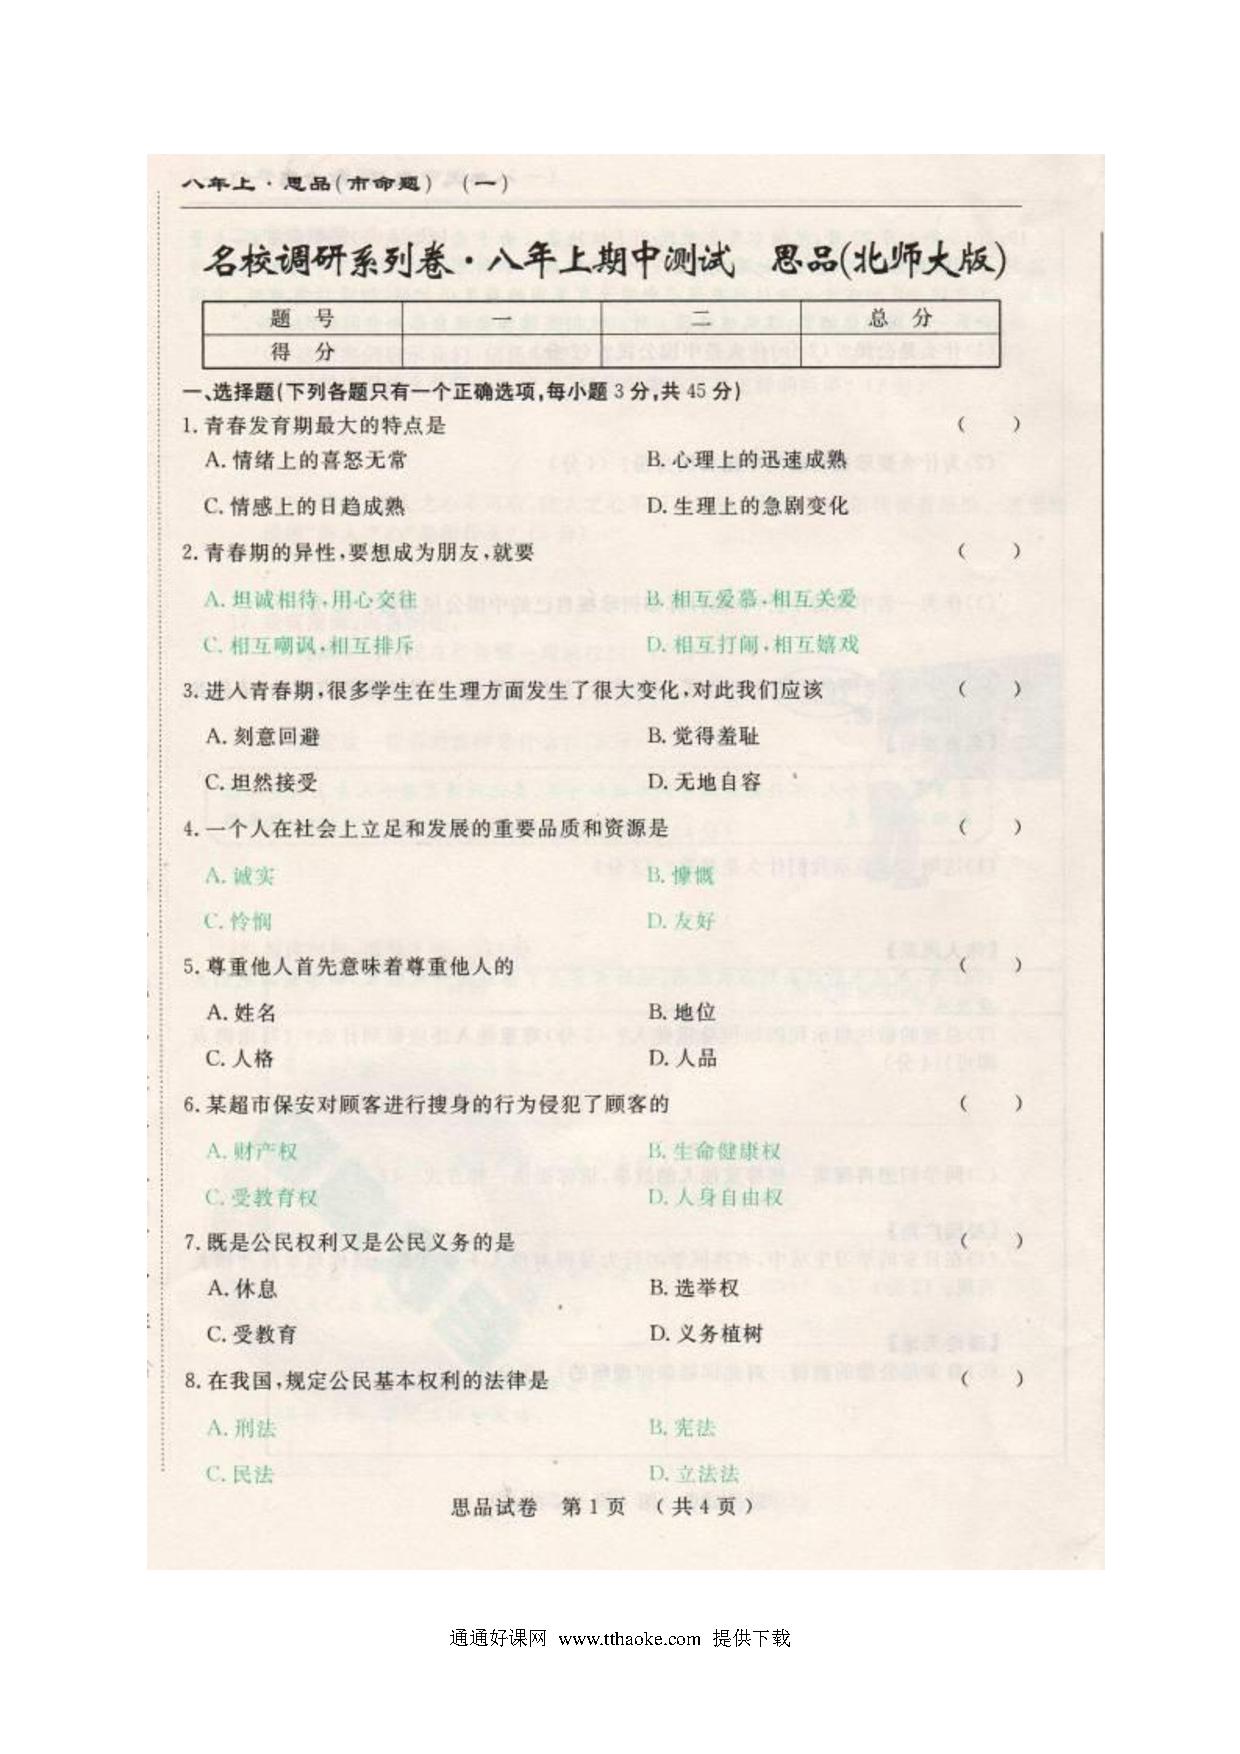 八年上·思品(市命题) (一)
名校调研系列卷·八年上期中测试 思品(北师大版)
题 号 一 二 总 分
得 分
一、选择题(下列各题只有一个正确选项,每小题3分,共45分)
1.青春发育期最大的特点是 ( )
A.情绪上的喜怒无常 B.心理上的迅速成熟
C.情感上的日趋成熟 D.生理上的急剧变化
2.青春期的异性,要想成为朋友,就要 ( )
A.坦诚相待,用心交往 B.相互爱慕,相互关爱
C.相互嘲讽,相互排斥 D.相互打闹,相互嬉戏
3.进入青春期,很多学生在生理方面发生了很大变化,对此我们应该 ( )
A.刻意回避 B.觉得羞耻
C.坦然接受 D.无地自容
4.一个人在社会上立足和发展的重要品质和资源是 ( )
A.诚实 B.慷慨
C.怜悯 D.友好
5.尊重他人首先意味着尊重他人的 ( )
A.姓名 B.地位
C.人格 D.人品
6.某超市保安对顾客进行搜身的行为侵犯了顾客的 ( )
A.财产权 B.生命健康权
C.受教育权 D.人身自由权
7.既是公民权利又是公民义务的是 ( )
A.休息 B.选举权
C.受教育 D.义务植树
8.在我国,规定公民基本权利的法律是 ( )
A.刑法 B.宪法
C.民法 D.立法法
思品试卷 第1页 (共4页)
通通好课网 www.tthaoke.com 提供下载